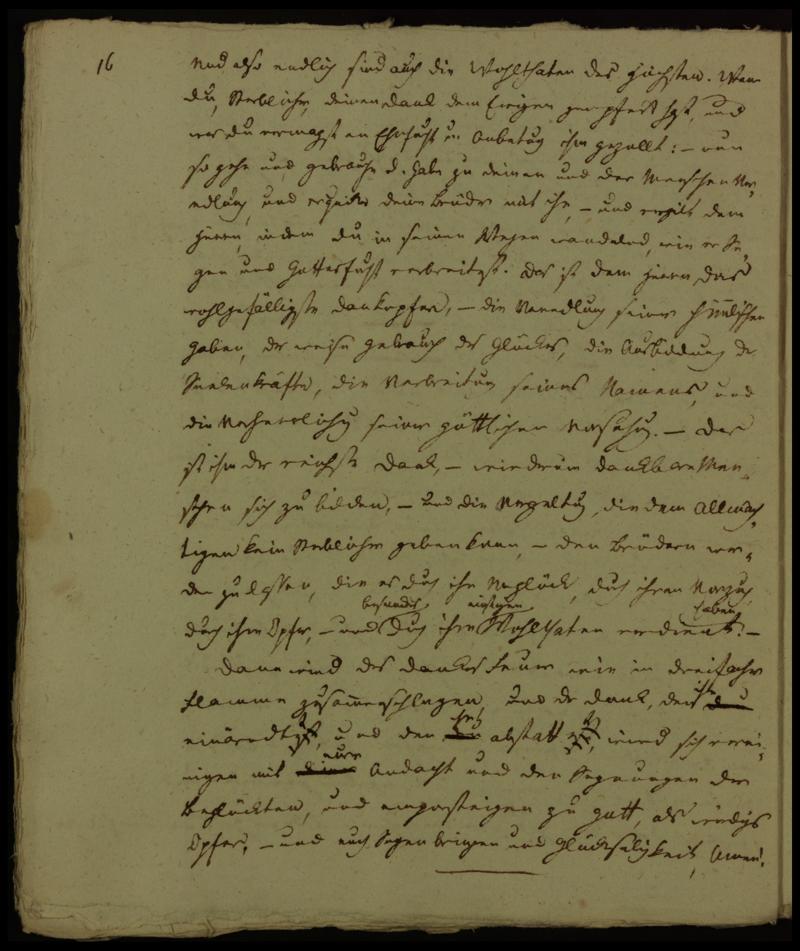 16
Und also endlich sind auch die Wohlthaten des Höchsten. Wenn
du, Sterblicher, deinen Dank dem Ewigen geopfert hast, und
was du vermagst an Ehrfurcht u. Anbetung ihm gezollt: – nun
so gehe und gebrauche d. Gabe zu deiner und der Menschen Ver,
edlung, und erquicke deine Brüder mit ihr, – und vergilt dem
Herrn, indem du in seinen Wegen wandelnd, wie er Se,
gen und Gottesfurcht verbreitest. Das ist dem Herrn das
wohlgefälligste Dankopfer, – die Veredlung seiner himlischen
Gaben, der weise Gebrauch des Glückes, die Ausbildung der
Seelenkräfte, die Verbreitung seines Namens, und
die Verherrlichung seiner göttlichen Vorsehung. – Das
ist ihm der reichste Dank, – wiederum dankbare Men,
schen sich zu bilden, – und die Vergeltung, die dem Allmäch,
tigen kein Sterblicher geben kann, – den Brüdern wer,
den zu lassen, die es durch ihr Unglück, durch ihren Vorzug,
durch ihre Opfer, – und durch ihre Wohlthaten verdient haben. –
Dann wird des Dankes Feuer wie in dreifacher
Flamme zusammenschlagen, und der Dank, den ihr
und den ihr abstattet, wird sich verei,
nigen mit eurer Andacht und den Segnungen der
Beglückten, und emporsteigen zu Gott, als würdiges
Opfer, – und euch Segen bringen und Glückseligkeit, Amen!